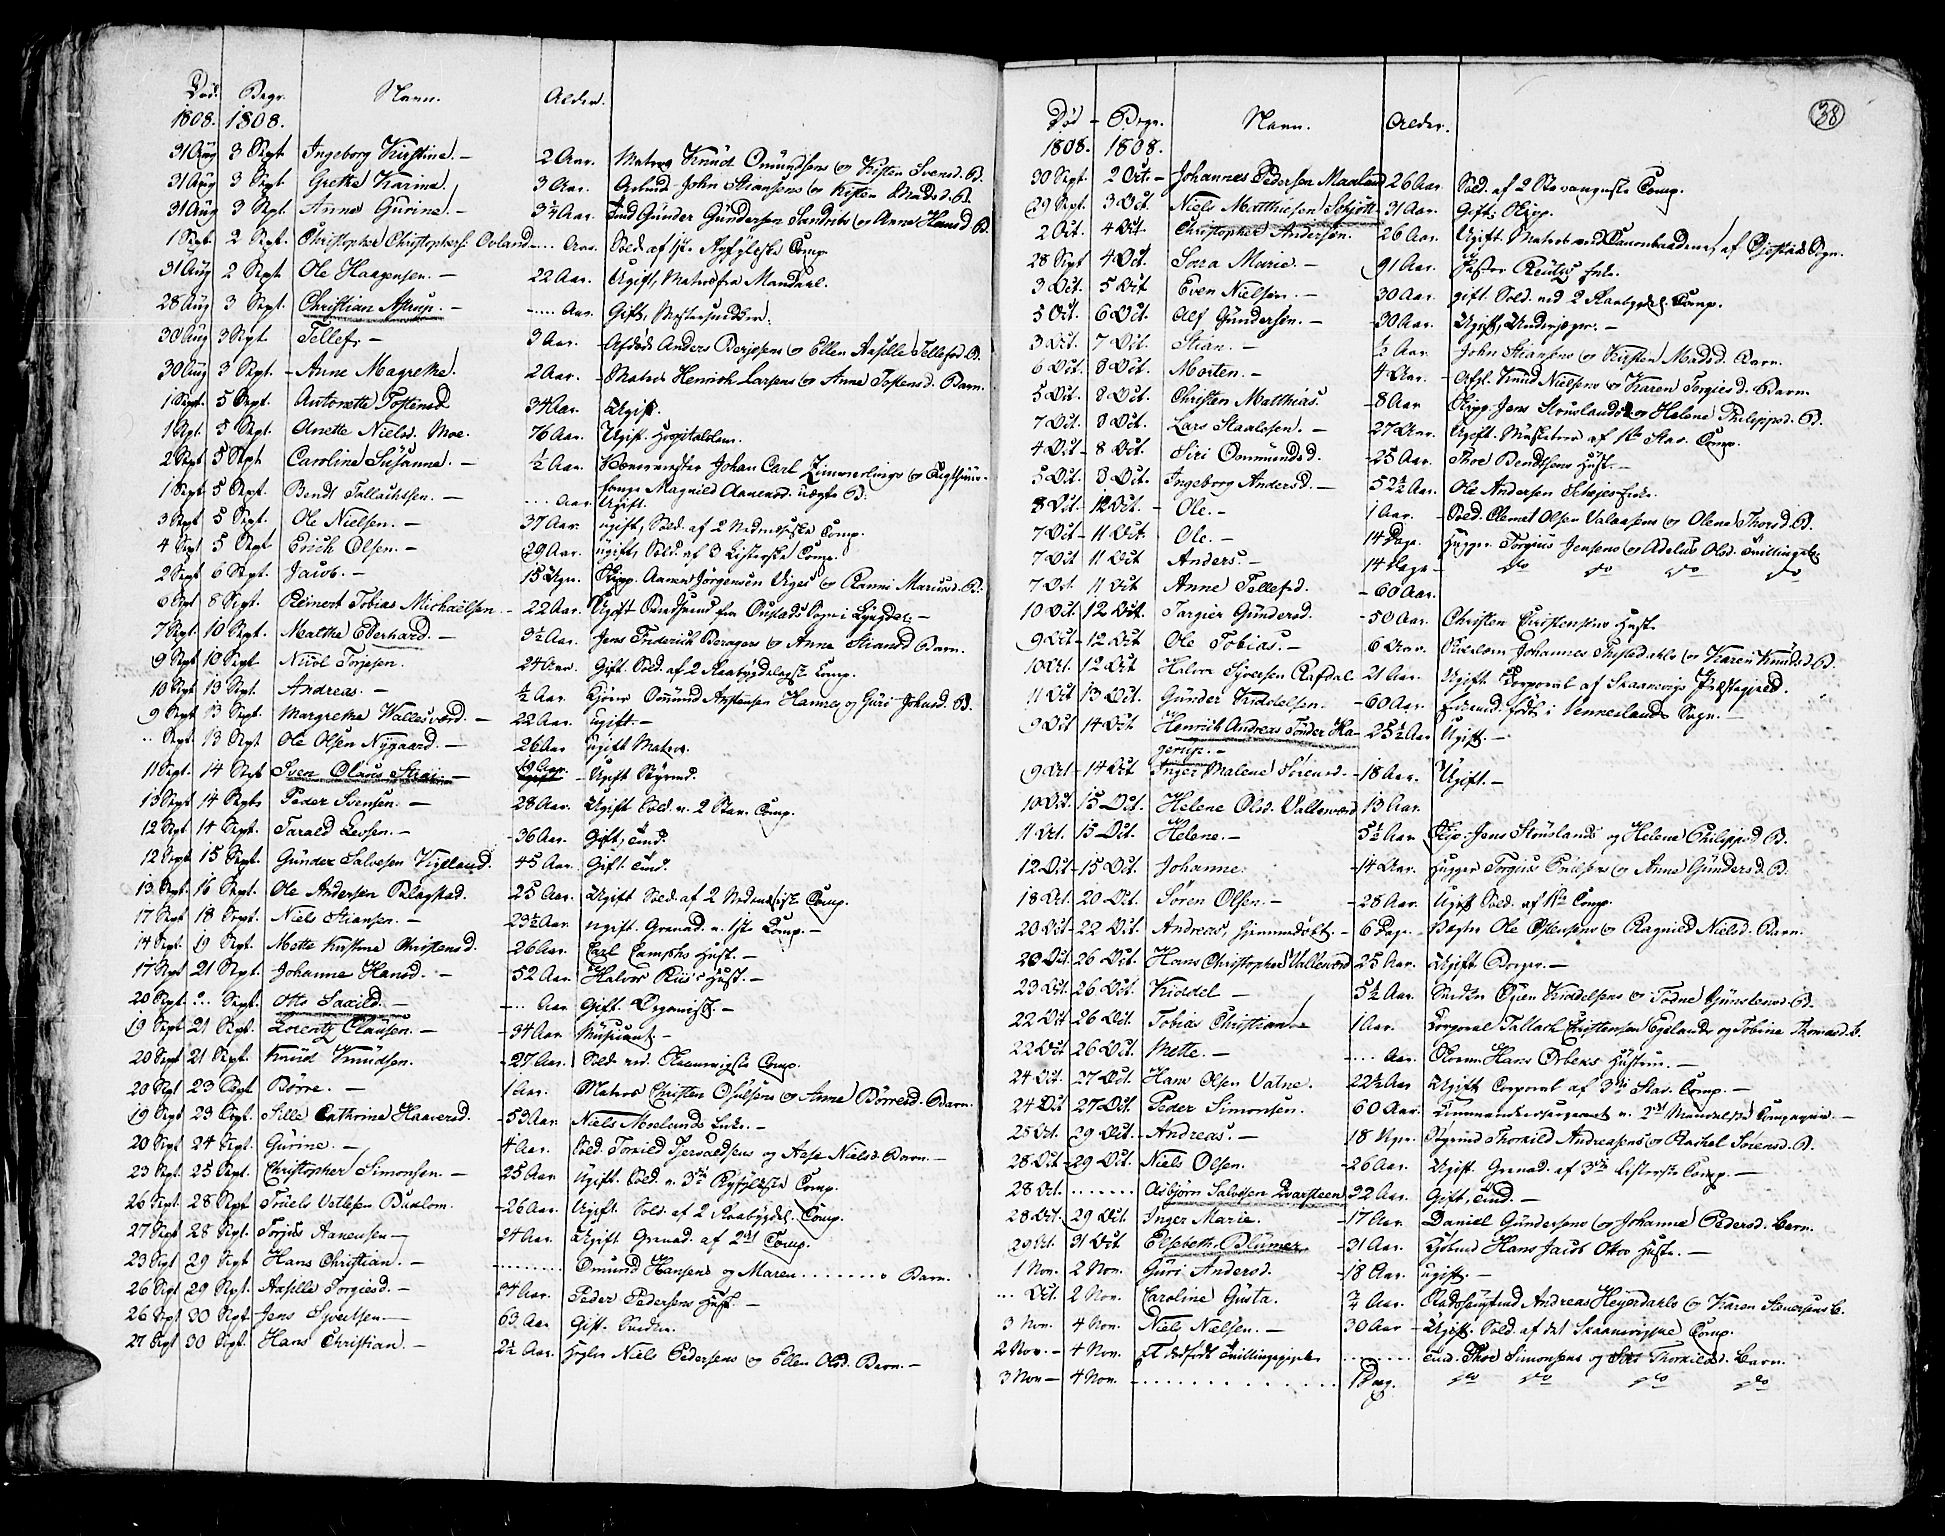 Død. Begr. Navn. Alder.
1808. 1808.
31 Aug 3 Sept Ingeborg Kirstine. - 2 Aar. Matros Knud Omundsens og Kisten Svensd. B.
31 Aug 3 Sept Grethe Karine. 3 Aar. Arbmd John Stiansens og Kisten Madsd. B.
31 Aug 3 Sept. Anne Gurine. - 3½ Aar. Ind Gunder Gundersen Sandvigs og Anne Hansd B.
1 Sept 2 Sept. Christopher Christophers. Ovland - .... Aar. Sold. af 1ste Ryfylkeske Comp.
31 Aug 2 Sept Ole Haagensen. - 22 Aar. Ugift, Matros fra Mandaal.
28 Aug 3 Sept. Christian Astrup. - .... Aar. Gift,
30 Aug 3 Sept Tellef. - 3 Aar. Afdøde Anders Berjesens og Ellen Aaselle Tellefsd B.
30 Aug 3 Sept. - Anne Magrethe. 2 Aar. - Matros Henrich Larsens og Anne Tostensd. Barn.
1 Sept. 5 Sept. Antonette Tostensd 34 Aar. Ugift.
1 Spt. 5 Sept. Anette Nielsd. Moe. 76 Aar. Ugift. Hospitalslem.
2 Sept 5 Sept Caroline Susanne. - ½ Aar. Johan Carl Zimmerlings og
Magnild Aanensd. uægte B.
1 Sept 5 Sept. Bendt Tallachsen. - .... Aar Ugift.
3 Sept 5 Sept. Ole Nielsen. - 37 Aar. ugift, Sold. af 2 Nedenæsiske Comp.
4 Sept 5 Sept Erich Olsen. - 29 Aar. ugift, Sold. af 3 Listerske Comp.
2 Sept 6 Sept. Jacob. - 15 Uger. Skipp. Aanen Jørgensen Uiges og Ranni Mariusd. B.
6 Sept 8 Sept. Reinert Tobias Michaelsen - 22 Aar. Ugift fra Sogn i Lyngdal. -
7 Sept. 10 Sept. Mathea Eberhard. - 3½ Aar. Jens Friderich Beragers og Anne Stiansd Barn.
9 Sept 10 Sept Niel Torjesen. 24 Aar. Gift. Sold. af 2 Raabygdelagske Comp.
10 Sept 13 Sept. Andreas. - ½ Aar. Osmund Anstensen Hanne og Guri Johnsd. B.
9 Sept 13 Sept. Margrethe Wallesverd. - 22 Aar. ugift. -
.. Sept. 13 Sept Ole Olsen Nygaard. - 26 Aar ugift Matros.
11 Sept. 14 Sept Sven Olaus Strai. - 19 Aar. - Ugift Styrmd.
13 Sept 14 Septr Peder Svensen. - 28 Aar. Ugift Sold. v. 2 Stav. Comp.
12 Sept 14 Sept. Tarald Levsen. - - 36 Aar. Gift, Ind.
12 Sept 15 Sept. Gunder Salvesen Vigeland. 45 Aar. Gift. Ind.
13 Sept. 16 Sept. Ole Andersen Blagstad. 25 Aar. Ugift Sold. af 2 Nedenæsiske Comp.
17 Sept 18 Sept. Niels Stiansen. - 23½ Aar. ugift. Grenad. v. 1ste Comp. -
14 Sept. 19 Sept. Mette Kirstine Christensd. - 26 Aar. Carl Camphs Hust. -
17 Sept 21 Sept. Johanne Hansd. - 52 Aar. Halvor Riis's Hust. -
20 Sept. ... Sept. Otto Saxild. - .... Aar Gift. Organist. -
19 Sept 21 Sept. Lorentz Clausen. - - 34 Aar. Musicant -
20 Sept 21 Sept. Knud Knudsen. - 27 Aar. Sold ved Skaanevigske Comp.
20 Sept 23 Sept Børre. - 1 Aar. Matros Christen Olsens og Anne Børresd. Barn.
19 Sept 23 Sept. Sille Cathrine Haaversd. - 53 Aar. Niels Moselunds Enke. -
20 Sept 24 Sept. Gurine. - 4 Aar. Sold. Torkild Tjersvaldsens og Aase Nielsd. Barn. -
23 Sept. 25 Sept. Christopher Simonsen. - 25 Aar. Ugift. Sold. v. 3die Ryfylkeske Comp.
26 Sept. 28 Sept Truels Vetlesen Buxlom. - 26 Aar. Ugift. Sold. af 2 Raabygdel. Comp.
27 Sept 28 Sept. Torjus Aanensen - 24 Aar. Ugift Grenad. af 2det Comp.
23 Sept 29 Sept Hans Christian. - ......... Omund Hansens og Maren ....... s Barn.
26 Sept 29 Sept. Aaselle Torgiesd. - 34 Aar. Peder Pedersens Hust. -
26 Sept 30 Sept. Jens Syvertsen. - 63. Aar Gift. Snedker.
27 Sept 30 Sept. Hans Christian. - 2½ Aar. Niels Pedersens og Ellen Olsd. Barn. -
38
Død - Begr. Navn. Alder.
1808. 1808.
30 Sept. 2 Oct. - Johannes Pedersen Maaland 26 Aar. Sold. af 2 Stavangerske Comp.
29 Sept. 3 Oct. Niels Matthiesen Schjøtt - 31 Aar. Gift. Skipp.
2 Oct. 4 Oct Christopher Andersen. 26 Aar. Ugift. Matros ved Canonbaadene, af Sogn.
28 Sept 4 Oct. Sara Marie. - 91 Aar. Pastor Reutz's Enke.
3 Oct. 5 Oct Even Nielsen. - 30 Aar. gift. Sold. ved 2 Raabygdel. Comp.
5 Oct. 6 Oct. Alf Gundersen. - - 30 Aar. Ugift, Underjæger. -
3 Oct. 7 Oct. Stian. - ½ Aar. John Stiansens og Kirsten Madsd. Barn.
6 Oct. 8 Oct. Morten. - 4 Aar. - Afgl. Knud Nielsens og Karen Torgiesd. Barn.
5 Oct. 8 Oct. Christen Matthias. - 8 Aar Skipp. Jens Stouslands og Helene Philippsd. B.
7 Oct. 8 Oct. Lars Staalesen. - - 27 Aar. Ugift. Musketeer af 1ste Stav. Comp.
4 Oct - 8 Oct. Siri Ommundsd. - 25 Aar. Thoe Bendtsens Hust. -
5 Oct. 8 Oct. Ingeborg Andersd. - 52½ Aar. Ole Andersen Enke.
8 Oct. - 12 Oct. - Ole. - 1 Aar. - Sold. Clemet Olsen Valaasens og Olene Thorsd. B.
7 Oct - 11 Oct. Ole. - 14 Dage. Hugger Torgius Jensens og Adelus Olsd. Tvillingsb.
7 Oct 11 Oct Anders. - 14 Dage - do do do do
7 Oct. 11 Oct Anne Tellefsd. - 60 Aar.
10 Oct. 12 Oct. Targier Gundersd. - 50 Aar. Christen Christensens Hust.
9 Oct. - 12 Oct Ole Tobias. - 6 Aar. Johannes og Karen Knudsd. B.
10 Oct. 12 Oct Halvor Syversen Rafdal. 21 Aar. Ugift Corporal af Skaanevigs Præstegield.
11 Oct 13 Oct. Gunder Kiddelsen. - 60 Aar. født i Venneslands Sogn. -
9 Oct 14 Oct. Henrich Andreas Tønder Ha- - 25½ Aar Ugift. -
gerup. -
9 Oct - 14 Oct Inger Malene Sørensd. - 18 Aar. Ugift. -
10 Oct. 15 Oct. Helene Olsd. Vallesverd 13 Aar.
11 Oct. 15 Oct. Helene. - 5½ Aar Skip. Jens Stouslands og Helene Philippsd. B.
12 Oct - 15 Oct. Johanne. - 14 Aar. Hugger Torgius Nielsens og Anne Gundersd. B.
18 Oct. 20 Oct. Søren Olsen. - - 28 Aar. Ugift Sold. af 1ste Comp.
20 Oct - 22 Oct. Andreas, hjemmedøbt. - 6 Dage. Vægter Ole Olsens og Ragnild Nielsd. Barn.
20 Oct 26 Oct. Hans Christopher Vallesverd 25 Aar. Ugift Borger. -
23 Oct. 26 Oct. Kiddel - 5½ Aar. Snedker Kiddelsens og Todne Gunstensd. B.
22 Oct 26 Oct. Tobias Christian - 1 Aar. Corporal Tallach Christensen Egelands og Tobine Thomasd. B.
22 Oct 26 Oct. Mette. - .... Aar. Hans Orbens Hustru. -
24 Oct. 27 Oct. Hans Olsen Vatne. 22½ Aar Ugift Corporal af 3die Stav. Comp. -
24 Oct 27 Oct. Peder Simonsen. 60 Aar. Commandeersergeant v. 2det Mandalske Compagnie. -
25 Oct. 29 Oct. - Andreas. - - 18 Uger. Styrmd Thorkild Andreasens og Rachel Sørensd. B.
28 Oct - 29 Oct. Niels Olsen. - 26 Aar. Ugift. Grenad. af 3die Listerske Comp. -
28 Oct. ....... Asbjørn Salvesen Qvarsteen 32 Aar. Gift, Ind. -
28 Oct. 29 Oct. Inger Marie. - 17 Aar. Daniel Gundersens og Johanne Pedersd. Barn.
29 Oct. 31 Oct Elsebeth Blümer - 31 Aar. Kjøbmd Hans Jacob Ottos Hustr. -
1 Nov. 2 Nov. Guri Andersd. - 18 Aar. ugift. -
... Oct. 2 Nov. Caroline Gusta. ¾ Aar. Andreas Heyerdahls og Karen Stenersens B.
3 Nov. 4 Nov. Niels Nielsen. - 30 Aar Ugift. Sold. af det Skaanevigske Comp.
2 Nov. - 4 Nov. Et dødfødt Tvillingepigeb. ........ Ind. Thor Simonsens og Siri Thorkildsd. Barn.
3 Nov - 4 Nov. - ............ 1 Dag. do do do do